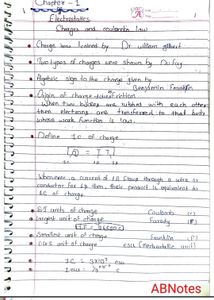 Chapter - 1
Electrostatics
Charges and coulomb's law
Charge was coined by Dr william gilbert
Two types of charges were shown by Du fay
Algebric sign to the charge given by
Benjamin Franklin
Origin of charge due friction
When two bodies are rubbed with each other
then electrons are transferred to that body
whose work function is low.
Define 1C of charge
Whenever a current of 1A flows through a wire or
conductor for 1s then their product is equivalent to
1C of charge.
SI units of charge Coulomb (C)
Largest unit of charge Faraday (F)
1F = 96500C
Smallest unit of charge Franklin
CGS unit of charge esu
1C = 3×10⁹ esu
ABNotes